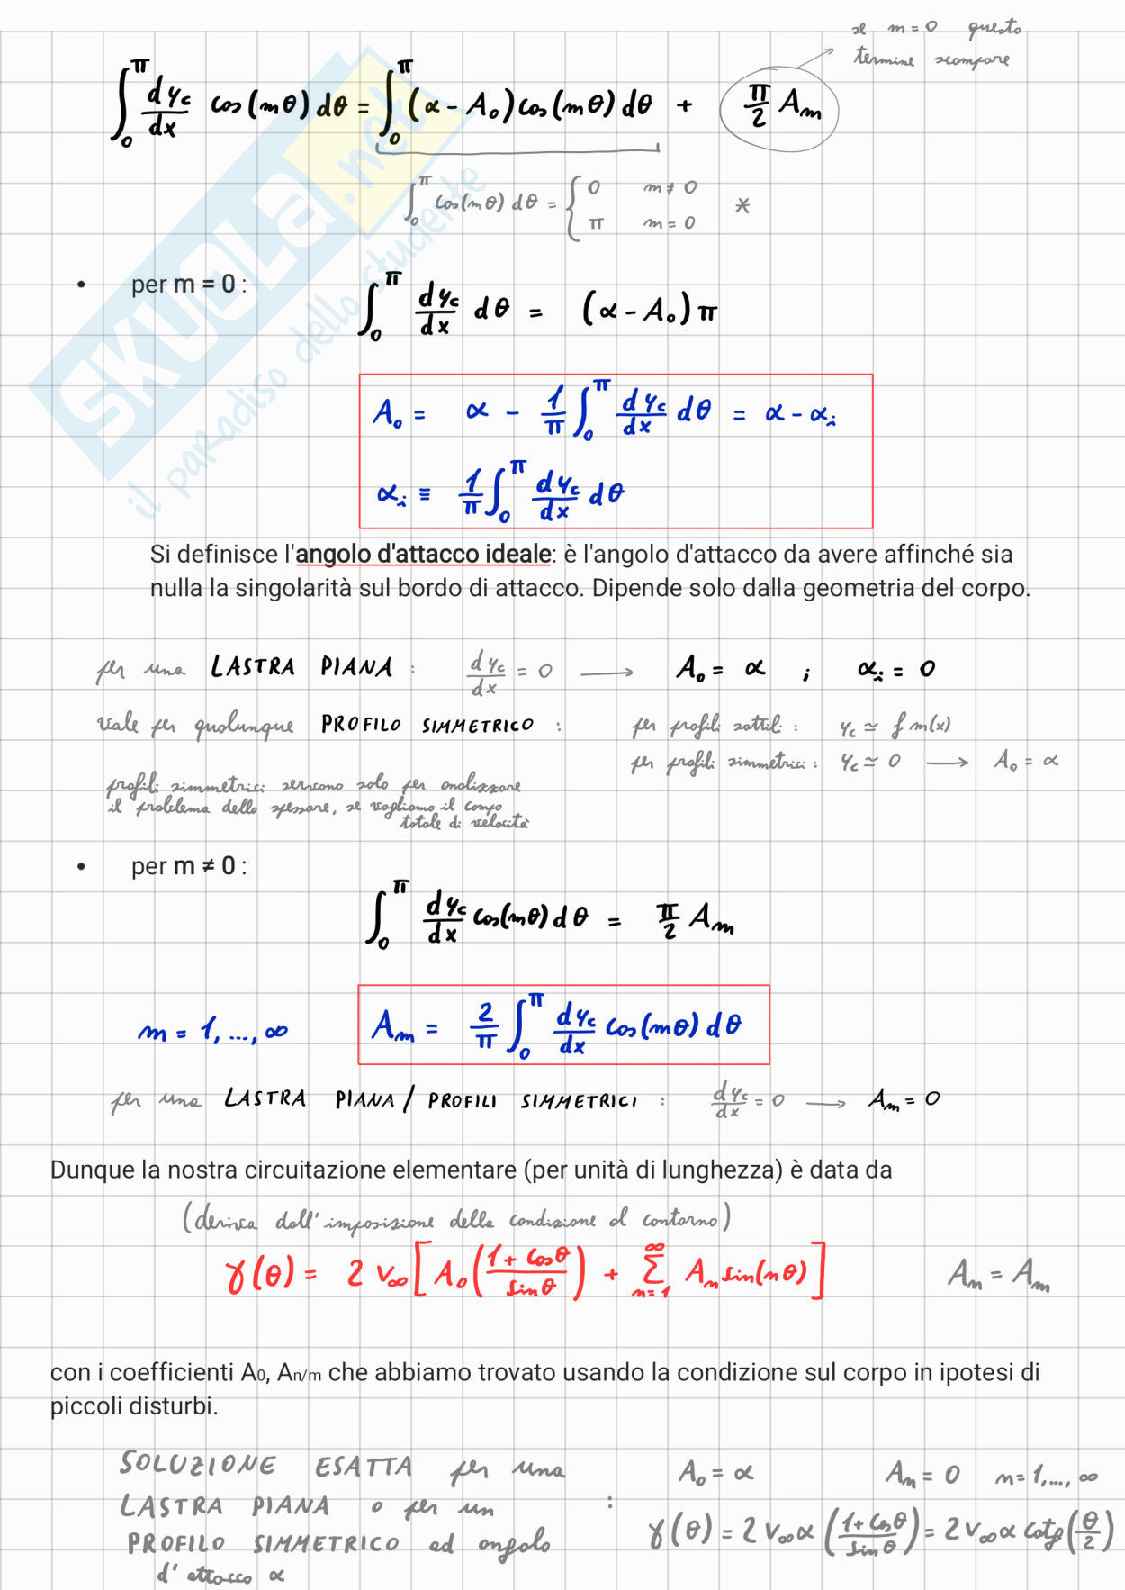 se m = 0 questo
termine scompare
∫₀^π dyc/dx cos(mθ) dθ = ∫₀^π (α - A₀) cos(mθ) dθ + π/2 Am
∫₀^π cos(mθ) dθ = { 0 m ≠ 0
π m = 0 *
SKUOLA.net
il paradiso dello studente
• per m = 0 :
∫₀^π dyc/dx dθ = (α - A₀) π
A₀ = α - 1/π ∫₀^π dyc/dx dθ = α - αi
αi ≡ 1/π ∫₀^π dyc/dx dθ
Si definisce l'angolo d'attacco ideale: è l'angolo d'attacco da avere affinché sia
nulla la singolarità sul bordo di attacco. Dipende solo dalla geometria del corpo.
per una LASTRA PIANA : dyc/dx = 0 → A₀ = α ; αi = 0
vale per qualunque PROFILO SIMMETRICO : per profili sottili : yc ≃ f m(x)
per profili simmetrici : yc ≃ 0 → A₀ = α
profili simmetrici servono solo per analizzare
il problema dello spessore, se vogliamo il campo
totale di velocità
• per m ≠ 0 :
∫₀^π dyc/dx cos(mθ) dθ = π/2 Am
m = 1, ..., ∞ Am = 2/π ∫₀^π dyc/dx cos(mθ) dθ
per una LASTRA PIANA / PROFILI SIMMETRICI : dyc/dx = 0 → Am = 0
Dunque la nostra circuitazione elementare (per unità di lunghezza) è data da
(deriva dall'imposizione della condizione al contorno)
γ(θ) = 2 V∞ [ A₀ ( (1 + cosθ)/sinθ ) + ∑_{n=1}^∞ An sin(nθ) ] An = Am
con i coefficienti A₀, An/m che abbiamo trovato usando la condizione sul corpo in ipotesi di
piccoli disturbi.
SOLUZIONE ESATTA per una A₀ = α Am = 0 m = 1, ..., ∞
LASTRA PIANA o per un :
PROFILO SIMMETRICO ad angolo γ(θ) = 2 V∞ α ( (1 + cosθ)/sinθ ) = 2 V∞ α cotg(θ/2)
d'attacco α